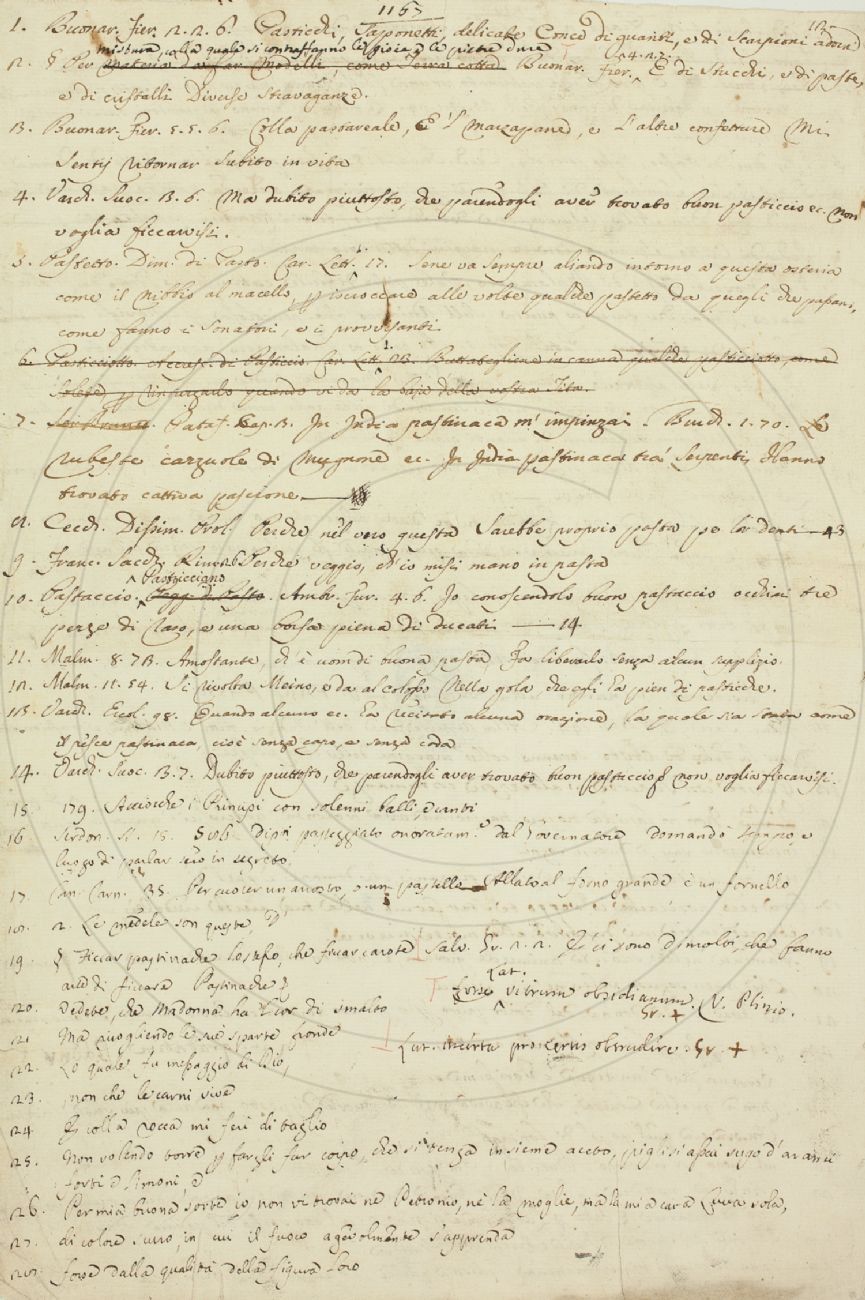 1153
1. Buonar. Fier. 2. 2. 6. Pasticchi, Saponetti, delicate Conce di guanti, e di Scarpioni
mistura, colla quale si contraffanno le gioie, e le pietre dure
2. § Per materia da far Modelli, come Terra cotta. Buonar. Fier. 4. 2. 7. E di Stucchi, e di paste,
e di cristalli Diverse stravaganze.
3. Buonar. Fier. 5. 5. 6. Colla pastareale, E 'l Marzapane, e l'altre confetture Mi
Sentij ritornar subito in vita
4. Varch. Suoc. 3. 6. Ma dubito piuttosto, che parendogli aver trovato buon pasticcio ec. non
voglia ficcarvisi.
5. Pastetto. Dim. di Pasto. Car. Lett. 17. Sene va sempre aliando intorno a questa osteria
come il nibbio al macello, p iscroccare alle volte qualche pastetto da quegli che passano,
come fanno i Sonatori, e i provvisanti
6. Pasticciotto. Accresc. di Pasticcio. Car. Lett. 1. in canna qualche pasticciotto, come
Solete, p quando vi da la baja della vostra
7. Pataf. Cap. 3. In India pastinaca m' impinza. Burch. 1. 70. Le
rubeste cazzuole di Mugnone ec. In India pastinaca tra' Serpenti, Hanno
trovato cattiva pascione
8. Cecch. Dissim. Prol. Perche nel vero questa Sarebbe proprio pasta pe lor denti 43
9. Franc. Sacch. Rim. Perche veggio, ch'io misi mano in pasta
Pastricciano
10. Pastaccio. Pegg. di Pasto. Ambr. Fur. 4. 6. Io conoscendolo buon pastaccio
pezze di raso, e una borsa piena di ducati 14
11. Malm. 8. 73. Amostante, ch' è uom di buona pasta, Fa liberarlo senza alcun supplizio.
12. Malm. 11. 54. Si rivolta Meino, e da al colosso Nella gola, che egli ha pien di pasticche.
13. Varch. Ercol. 98. Quando alcuno ec. ha recitato alcuna orazione, la quale sia stata come
il pesce pastinaca, cioè senza capo, e senza coda
14. Varch. Suoc. 3. 7. Dubito piuttosto, che parendogli aver trovato buon pasticcio non voglia ficcarvisi.
15. 179. Acciocche i Principi con solenni balli, e canti
16. Serdon. St. 15. 506. Dipoi passeggiato onoratam.e dal Governatore domandò tempo, e
luogo di parlar seco in segreto
17. Can. Carn. 35. Per cuocer un arrosto, o un pastello Allato al forno grande è un fornello
18. 2. Le medele son queste,
19. § Ficcar pastinache lo stesso, che ficcar carote Salv. Gr. 2. 2. Q ci sono dimolti, che fanno
arte di ficcare Pastinache
Lat.
forse vitreum obsidianum. V. Plinio.
Gr. +
20. Vedete, che Madonna ha l'cor di smalto
21. Ma ricogliendo le sue sparte fronde
Lat. incerta pro certis obtrudere. Gr. +
22. Lo quale fu messaggio di Dio,
23. non che le carni vive
24. E colla rocca mi ferì di taglio
25. Non volendo torre p fargli far corpo, che si tenga insieme aceto, piglisi assai sugo d'arancie
forti e limoni, e
26. Per mia buona sorte io non vi trovai nè Petronio, nè la moglie, ma la mia cara Livia sola,
27. di colore scuro, in cui il fuoco agevolmente s'apprenda
28. forse dalla qualità della figura loro